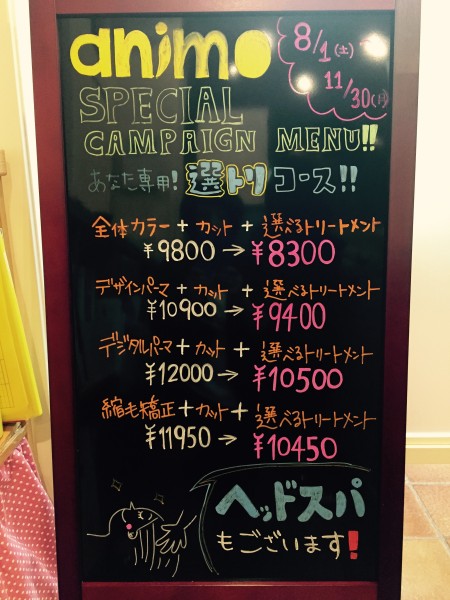 animo
8/1(土)～
11/30(月)
SPECIAL
CAMPAIGN MENU!!
あなた専用! 選トリコース!!
全体カラー + カット + 選べるトリートメント
¥9800 → ¥8300
デザインパーマ + カット + 選べるトリートメント
¥10900 → ¥9400
デジタルパーマ + カット + 選べるトリートメント
¥12000 → ¥10500
縮毛矯正 + カット + 選べるトリートメント
¥11950 → ¥10450
ヘッドスパ
もございます!